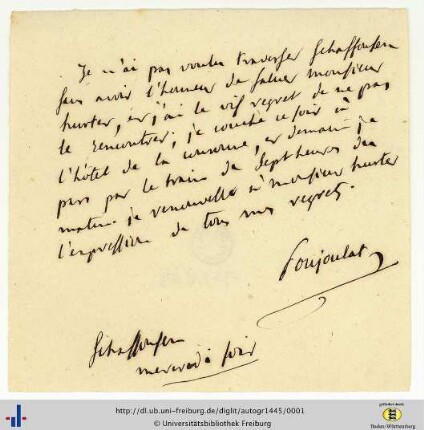 Je n'ai pas voulu traverser Schaffousen
sans avoir l'honneur de saluer monsieur
hurter, et j'ai le vif regret de ne pas
le rencontrer; je couche ce soir à
l'hôtel de la couronne, et demain je
pars par le train de sept heures du
matin. je renouvelle à monsieur hurter
l'expression de tous mes regrets.
Poujoulat
Schaffousen
mercredi soir
http://dl.ub.uni-freiburg.de/diglit/autogr1445/0001
© Universitätsbibliothek Freiburg
gefördert durch
Baden-Württemberg